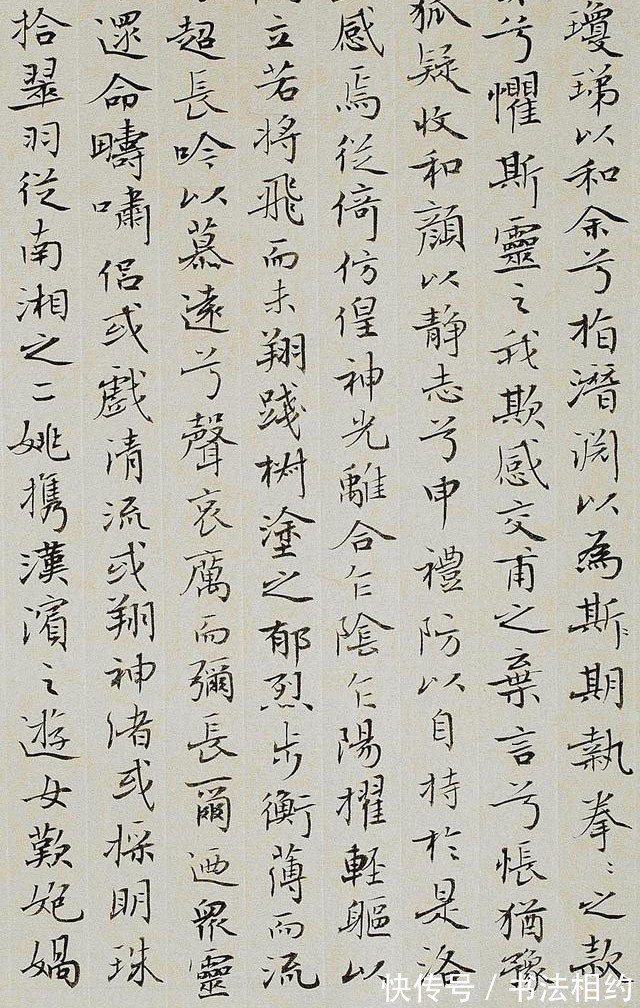 瓊珶以和余兮指潛淵以為斯期執拳〻之款
兮懼斯靈之我欺感交甫之棄言兮悵猶豫
狐疑收和顏以静志兮申禮防以自持於是洛
感焉從倚仿偟神光離合乍陰乍陽擢輕軀以
立若将飛而未翔踐樹塗之郁烈步衡薄而流
超長吟以慕遠兮聲哀厲而彌長爾迺眾靈
還命疇嘯侶或戲清流或翔神渚或採明珠
拾翠羽從南湘之二姚携漢濱之遊女歎匏媧
快传号／书法相约